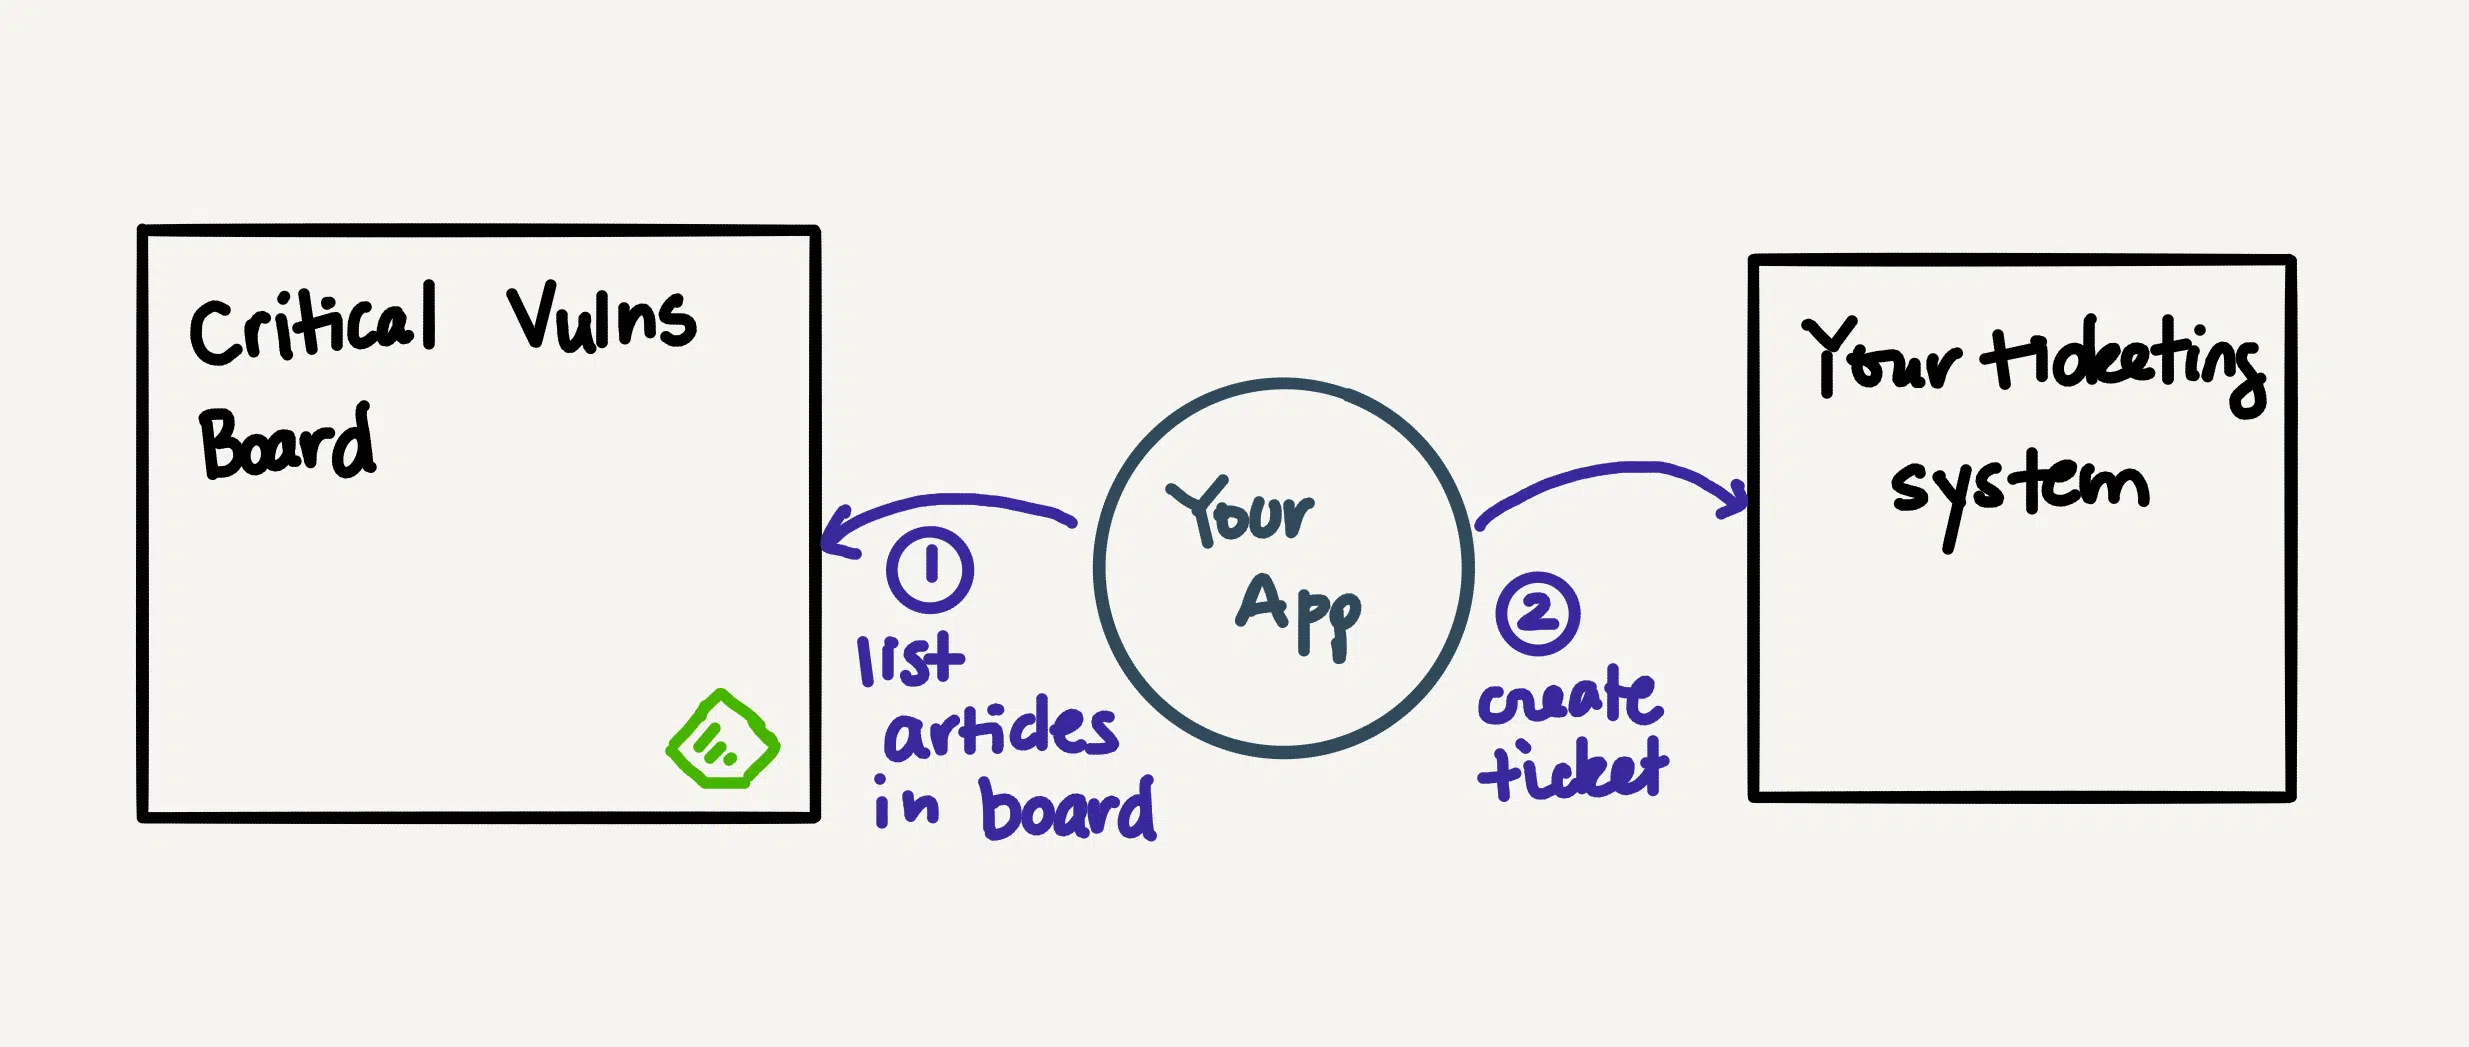 Critical Vulns
Board
1
list
articles
in board
Your
App
2
create
ticket
Your ticketing
system